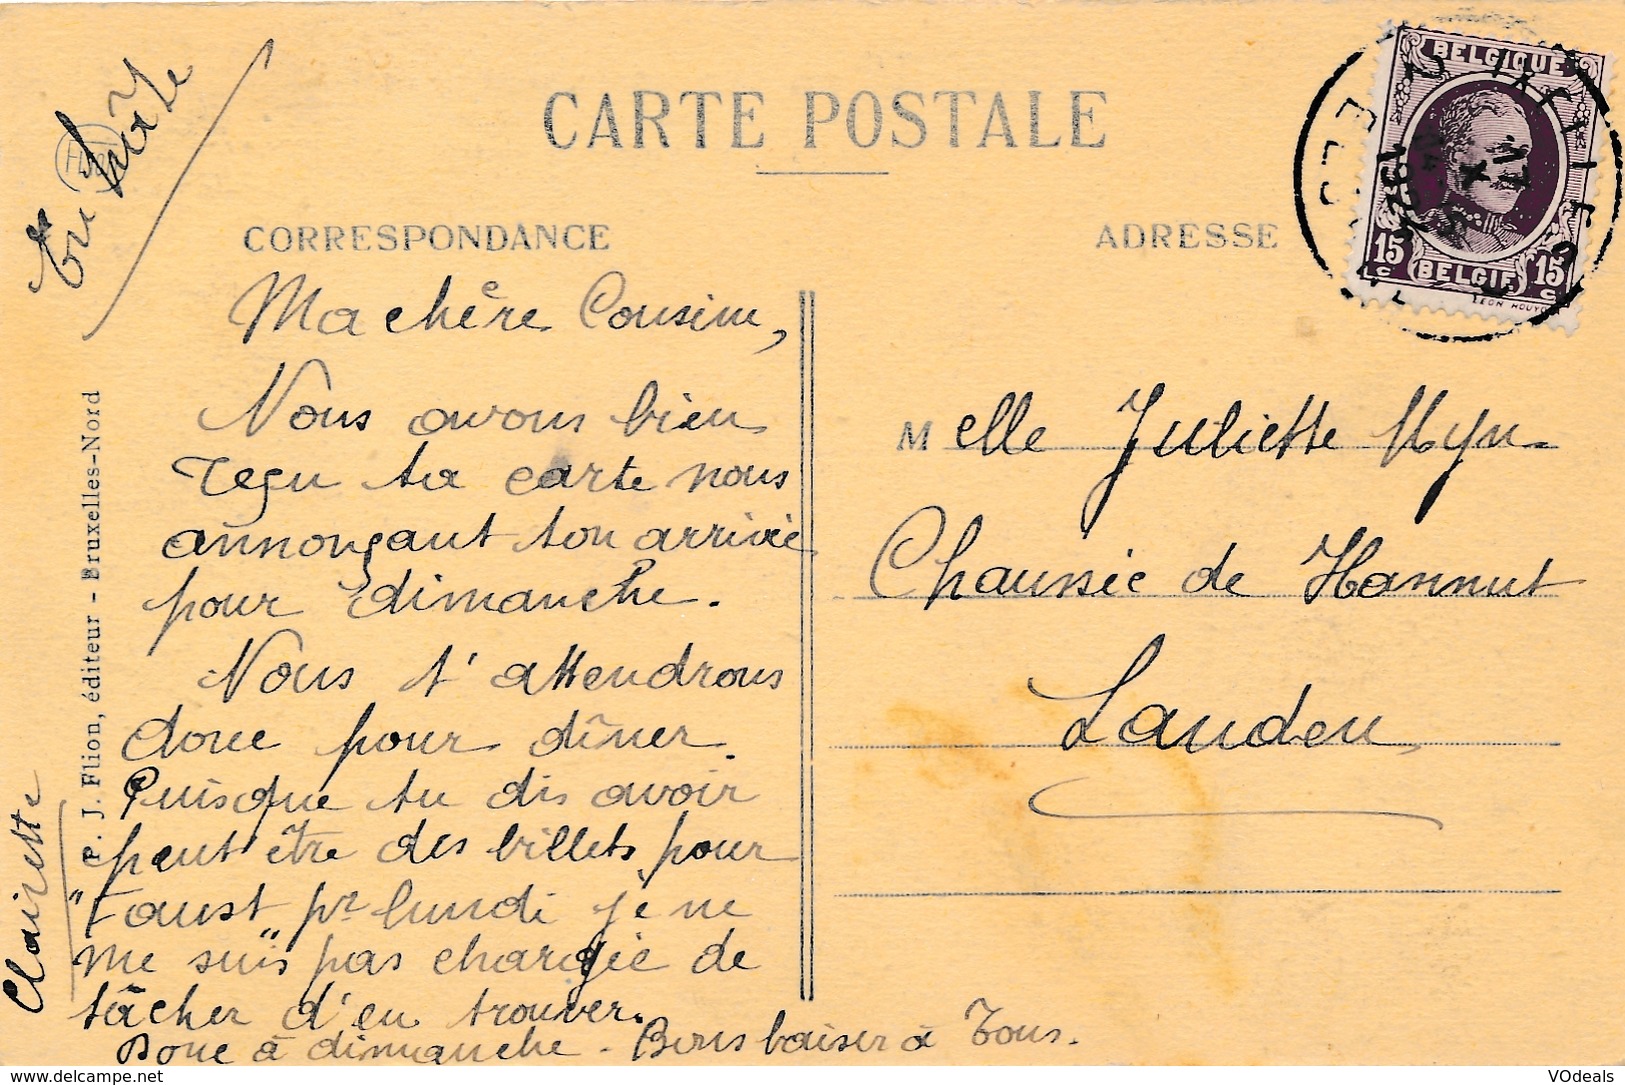 CARTE POSTALE
CORRESPONDANCE
ADRESSE
BELGIQUE
15 c
BELGIË
15 c
IXELLES
ELSENE
En hâte
Ma chère Cousine,
Nous avons bien
reçu ta carte nous
annonçant ton arrivée
pour dimanche.
Nous t'attendrons
donc pour dîner.
Puisque tu dis avoir
peut être des billets pour
"Faust" pr lundi je ne
me suis pas chargée de
tâcher d'en trouver.
Donc à dimanche - Bons baisers à Tous.
Clairette
Melle Juliette Myn
Chaussée de Hannut
Landen
P. J. Flion, éditeur - Bruxelles-Nord
VOdeals